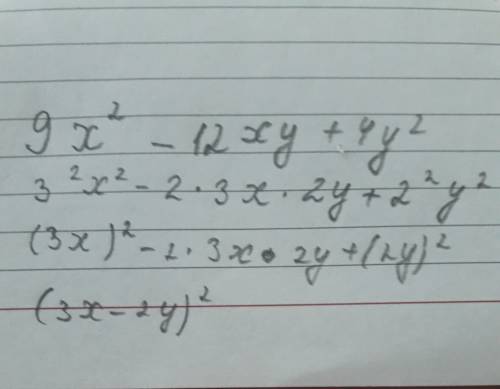 9x² - 12xy + 4y²
3²x² - 2·3x·2y + 2²y²
(3x)² - 2·3x·2y + (2y)²
(3x - 2y)²